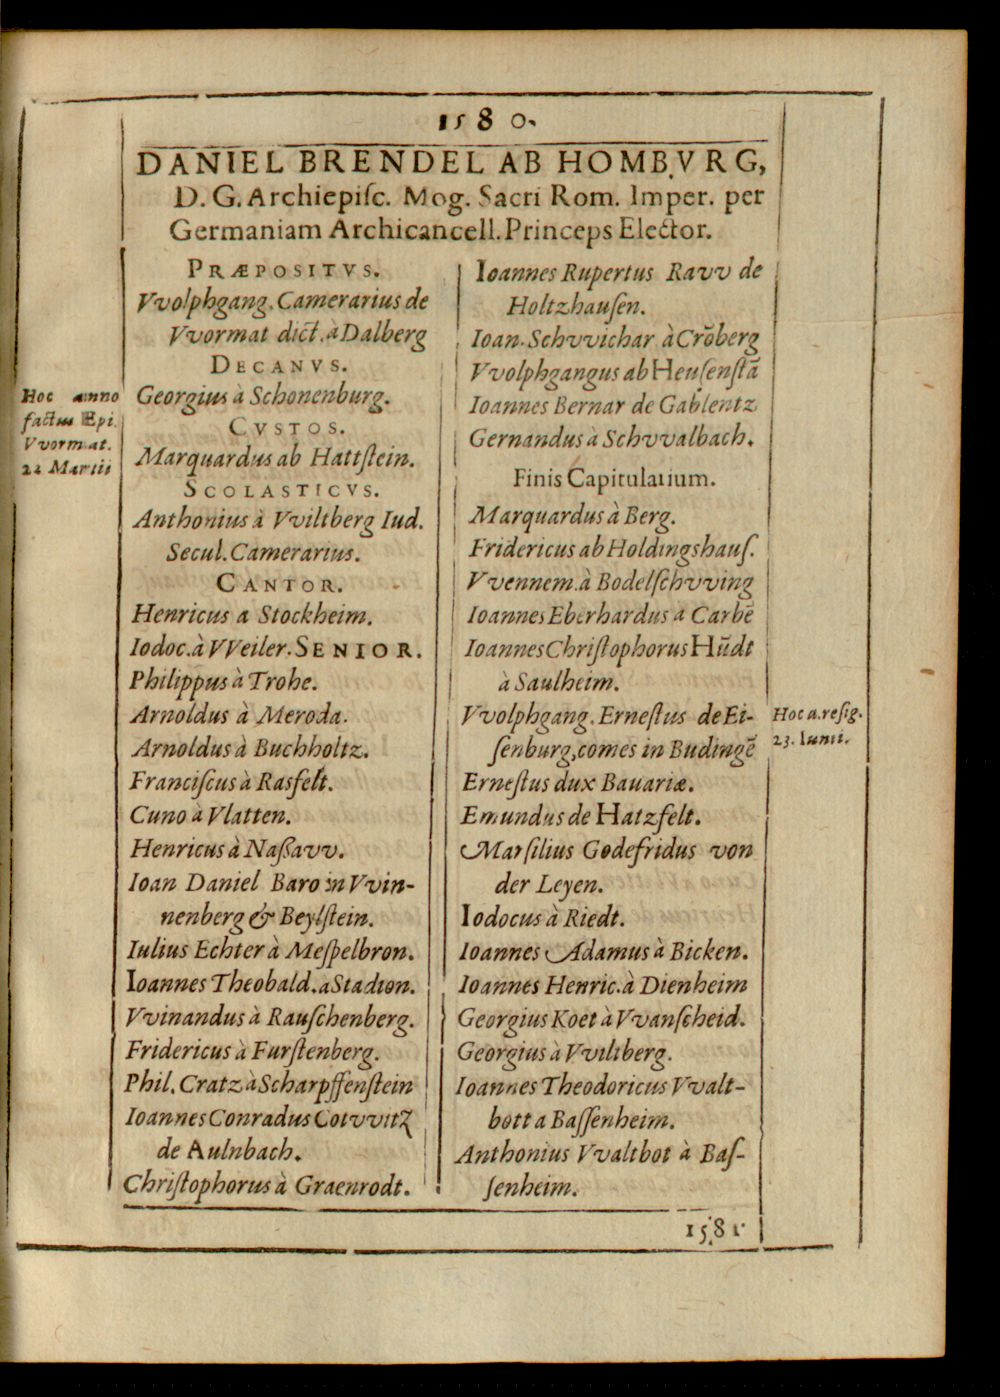 1580.
DANIEL BRENDEL AB HOMBVRG,
D. G. Archiepiſc. Mog. Sacri Rom. Imper. per
Germaniam Archicancell. Princeps Elector.
PRÆPOSITVS.
Vvolphgang. Camerarius de
Vvormat dict. à Dalberg
DECANVS.
Georgius à Schonenburg.
Hoc anno
factus Epi.
Vvormat.
22 Martii
CVSTOS.
Marquardus ab Hattſtein.
SCOLASTICVS.
Anthonius à Vviltberg Iud.
Secul. Camerarius.
CANTOR.
Henricus a Stockheim.
Iodoc. à VVeiler. SENIOR.
Philippus à Trohe.
Arnoldus à Meroda.
Arnoldus à Buchholtz.
Franciſcus à Rasfelt.
Cuno à Vlatten.
Henricus à Naßavv.
Ioan Daniel Baro in Vvin-
nenberg & Beylſtein.
Iulius Echter à Meſpelbron.
Ioannes Theobald. a Stadion.
Vvinandus à Rauſchenberg.
Fridericus à Furſtenberg.
Phil. Cratz à Scharpffenſtein
Ioannes Conradus Cotvvitz
de Aulnbach.
Chriſtophorus à Graenrodt.
Ioannes Rupertus Ravv de
Holtzhauſen.
Ioan. Schvvichar à Crōberg
Vvolphgangus ab Heuſenſtā
Ioannes Bernar de Gablentz
Gernandus à Schvvalbach.
Finis Capitularium.
Marquardus à Berg.
Fridericus ab Holdingshauſ.
Vvennem. à Bodelſchvving
Ioannes Eberhardus a Carbē
Ioannes Chriſtophorus Hūdt
à Saulheim.
Vvolphgang. Erneſtus de Ei-
ſenburg, comes in Budingē
Hoc a. reſig.
23. Iunii.
Erneſtus dux Bauariæ.
Emundus de Hatzfelt.
Marſilius Godefridus von
der Leyen.
Iodocus à Riedt.
Ioannes Adamus à Bicken.
Ioannes Henric. à Dienheim
Georgius Koet à Vvanſcheid.
Georgius à Vviltberg.
Ioannes Theodoricus Vvalt-
bott a Baſſenheim.
Anthonius Vvaltbot à Baſ-
ſenheim.
1581